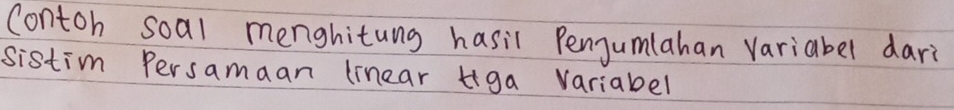 Contoh soal menghitung hasil Penjumlahan Variabel dari
Sistim Persamaan linear tiga Variabel